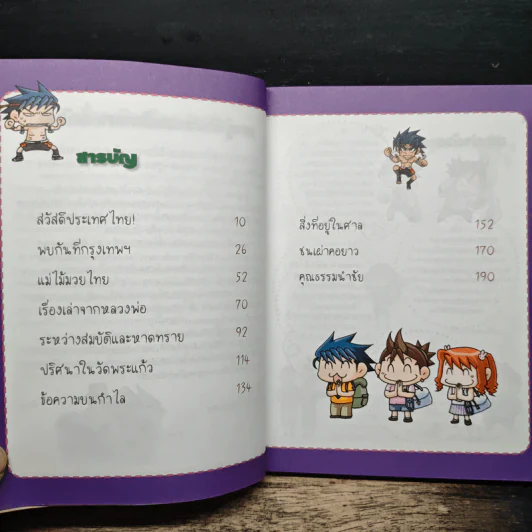 สารบัญ
สวัสดีประเทศไทย! 10
พบกันที่กรุงเทพฯ 26
แม่ไม้มวยไทย 52
เรื่องเล่าจากหลวงพ่อ 70
ระหว่างสมบัติและหาดทราย 92
ปริศนาในวัดพระแก้ว 114
ข้อความบนกำไล 134
สิ่งที่อยู่ในศาล 152
ชนเผ่าคอยาว 170
คุณธรรมนำชัย 190